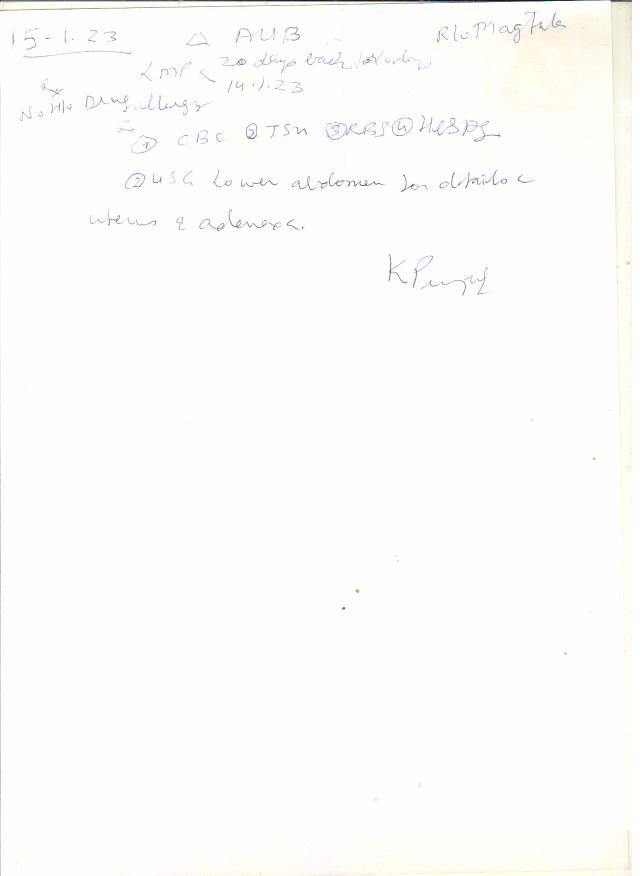 15-1.23 △ AUB R/o MagTala
LMP < 20 days back for 10 days
14.1.23
No H/o Drug allergy
① CBC ② TSH ③ RBS ④ HBsAg
② USG Lower abdomen for details c
uterus & adenexa.